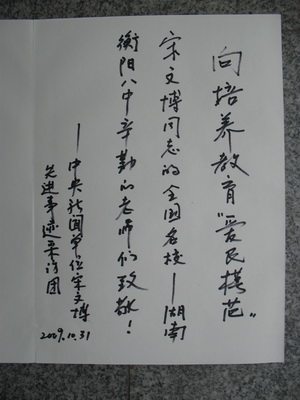 向培养教育“爱民模范”
宋文博同志的全国名校—湖南
衡阳八中辛勤的老师们致敬!
—中央新闻单位宋文博
先进事迹采访团
2009.10.31